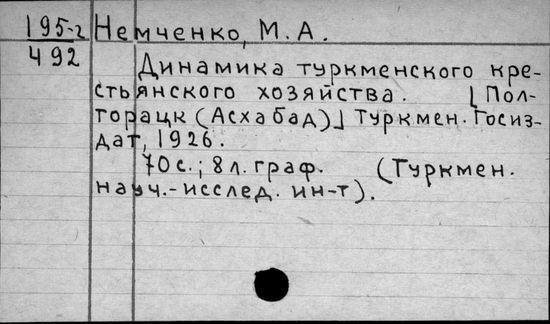 195-2 Немченко, М. А.
492
Динамика туркменского кре-
стьянского хозяйства. [Пол-
торацк (Асхабад)] Туркмен. Госиз-
дат, 1926.
70 с.; 8 л. граф. (Туркмен.
науч.-исслед. ин-т).